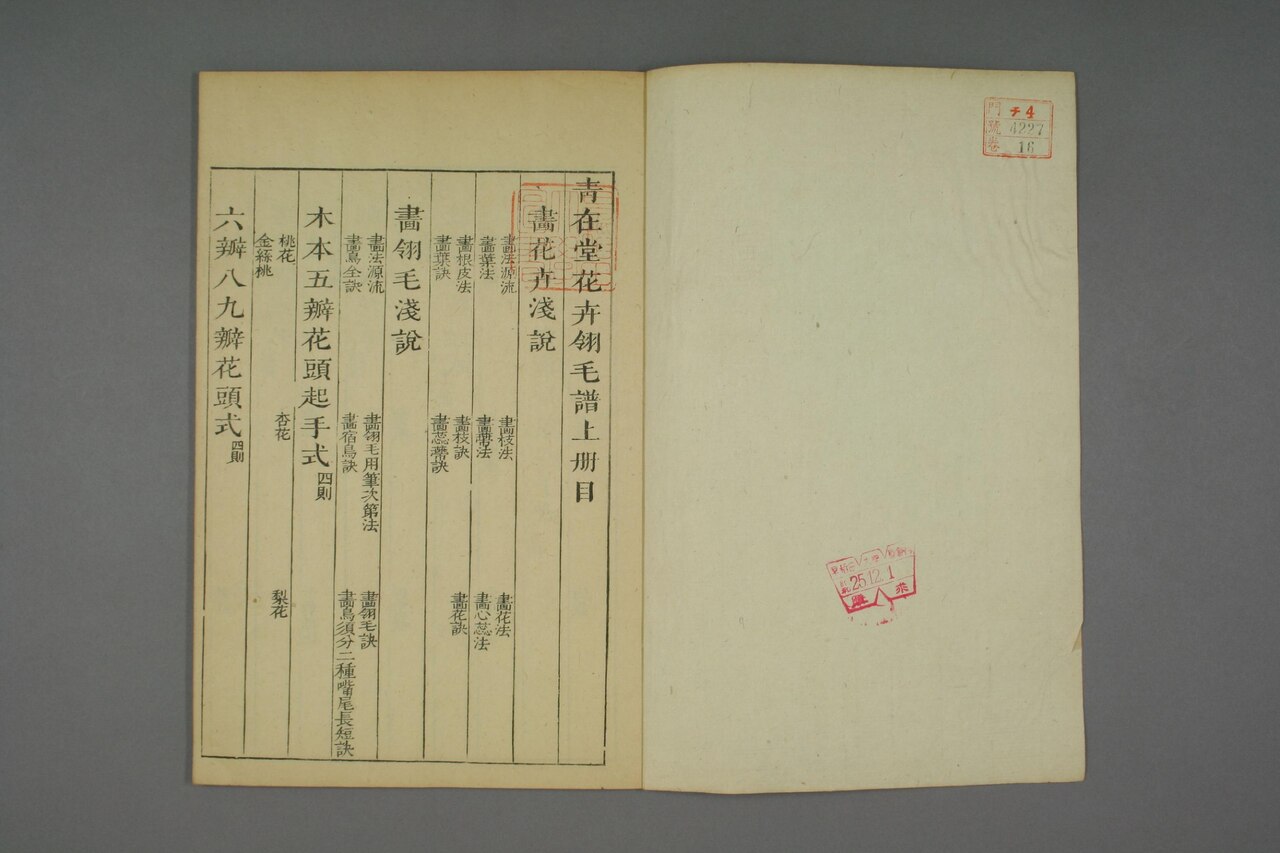 門 チ4
號 4227
卷 16
25.12.1
靑在堂花卉翎毛譜上册目
畫花卉淺說
畫法源流 畫枝法 畫花法
畫葉法 畫蒂法 畫心蕊法
畫根皮法 畫枝訣 畫花訣
畫葉訣 畫蕊蒂訣
畫翎毛淺說
畫法源流 畫翎毛用筆次第法 畫翎毛訣
畫鳥全訣 畫宿鳥訣 畫鳥須分二種嘴尾長短訣
木本五瓣花頭起手式 四則
桃花 杏花 梨花
金絲桃
六瓣八九瓣花頭式 四則